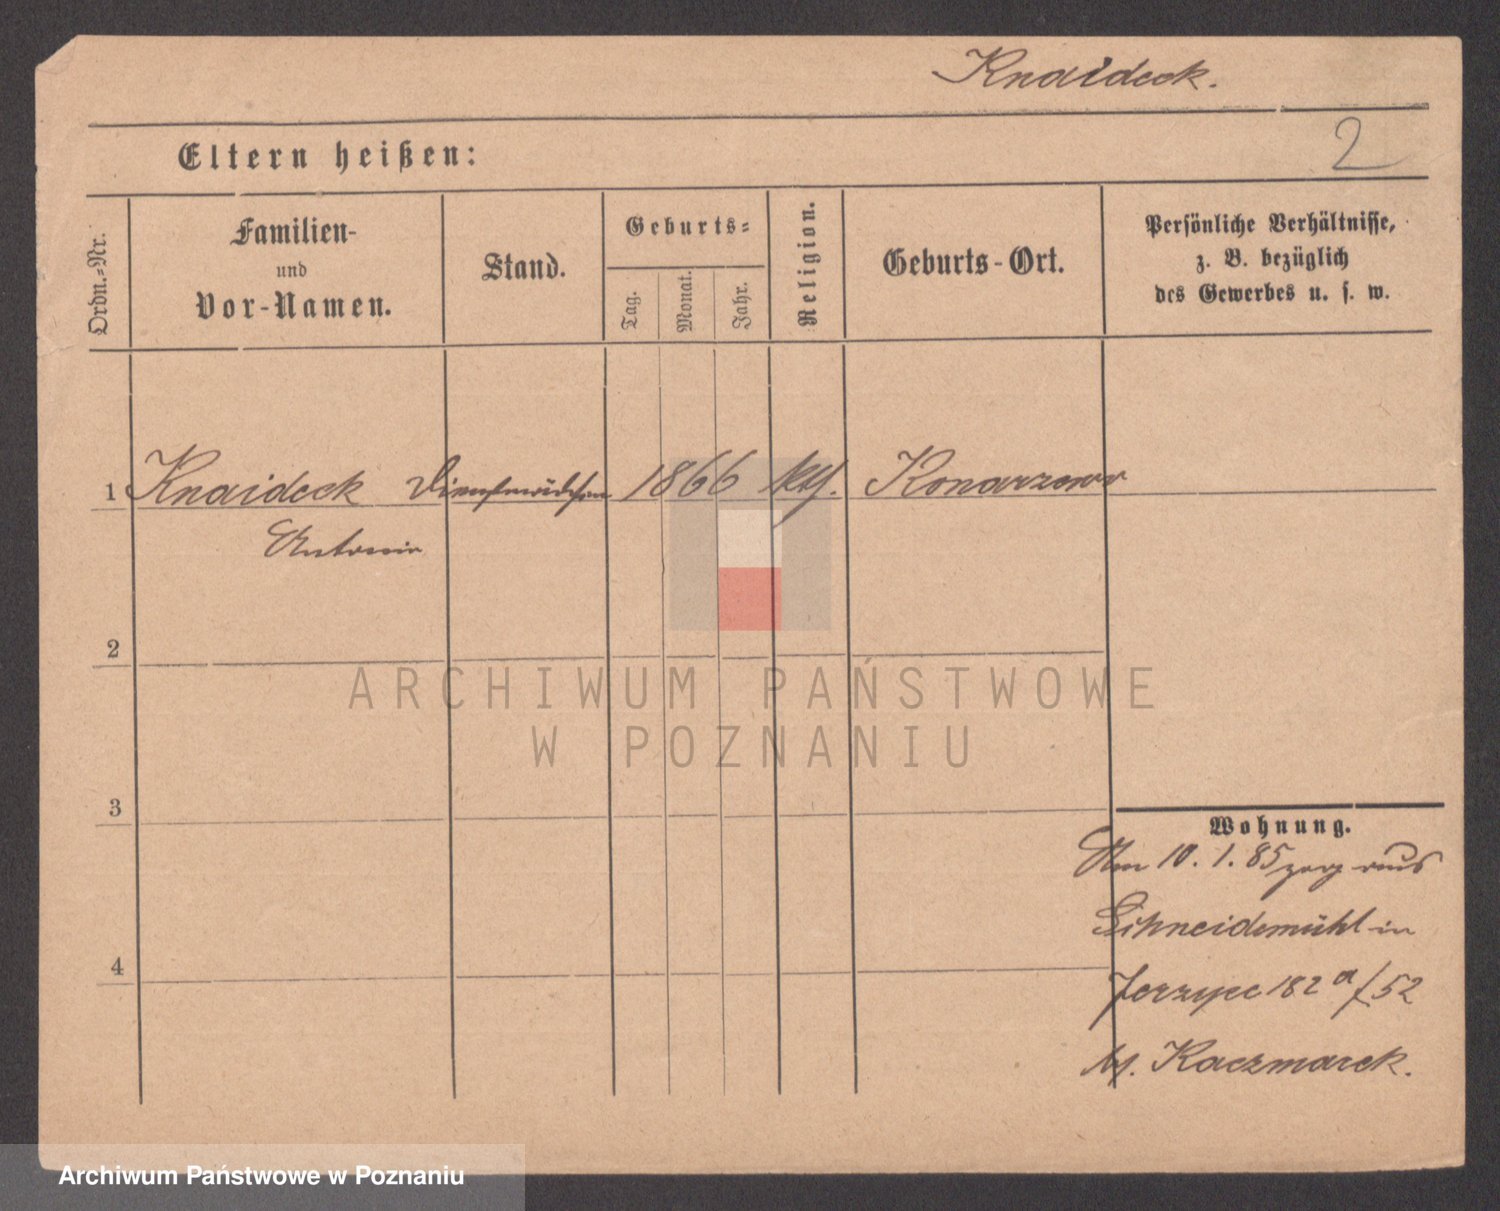 Knaideck.
2
Eltern heißen:
Ordn.=Nr.
Familien-
und
Vor-Namen.
Stand.
Geburts=
Tag.
Monat.
Jahr.
Religion.
Geburts-Ort.
Persönliche Verhältnisse,
z. B. bezüglich
des Gewerbes u. s. w.
1 Knaideck Dienstmädchen 1866 kth. Konarzewo
Antonie
2
ARCHIWUM PAŃSTWOWE
W POZNANIU
3
Wohnung.
Am 10. 1. 85 zog aus
Schneidemühl in
Jerzyce 182 a/52
b/. Kaczmarek.
4
Archiwum Państwowe w Poznaniu